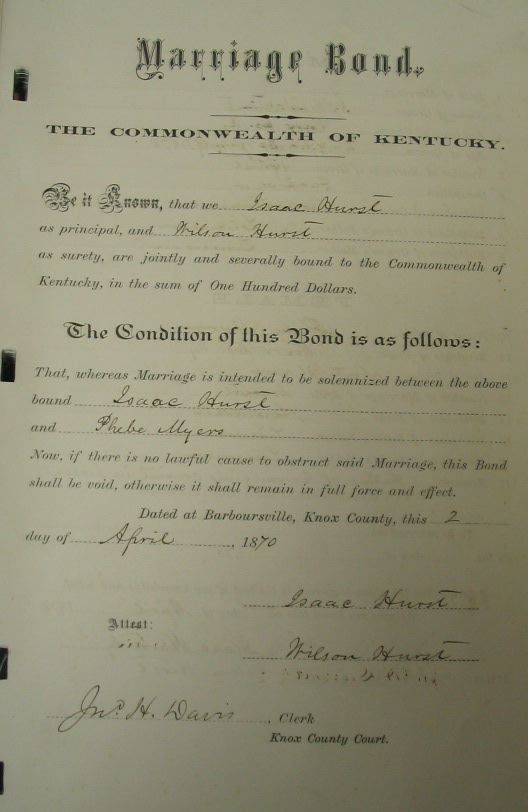 Marriage Bond.
THE COMMONWEALTH OF KENTUCKY.
Be it Known, that we Isaac Hurst
as principal, and Wilson Hurst
as surety, are jointly and severally bound to the Commonwealth of
Kentucky, in the sum of One Hundred Dollars.
The Condition of this Bond is as follows:
That, whereas Marriage is intended to be solemnized between the above
bound Isaac Hurst
and Phebe Myers
Now, if there is no lawful cause to obstruct said Marriage, this Bond
shall be void, otherwise it shall remain in full force and effect.
Dated at Barboursville, Knox County, this 2
day of April, 1870
Isaac Hurst
Attest:
Wilson Hurst
Jno. H. Davis, Clerk
Knox County Court.